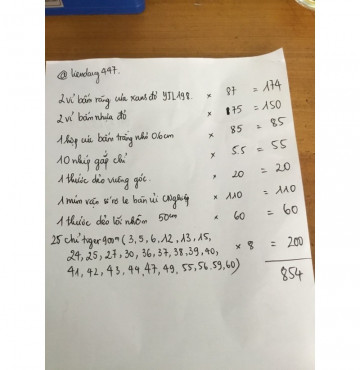 @ lieudang447.
2 vỉ bấm răng cưa xanh đỏ YJL198. × 87 = 174
2 vỉ bấm nhựa đỏ × 75 = 150
1 hộp cúc bấm trắng nhỏ 0.6cm × 85 = 85
10 nhíp gắp chỉ × 5.5 = 55
1 thước dẻo vuông góc. × 20 = 20
1 núm vặn s're le bàn ủi CNghiệp × 110 = 110
1 thước dẻo lõi nhôm 50cm × 60 = 60
25 chỉ tiger 400m (3, 5, 6, 12, 13, 15,
24, 25, 27, 30, 36, 37, 38, 39, 40, × 8 = 200
41, 42, 43, 44, 47, 49, 55, 56, 59, 60)
854